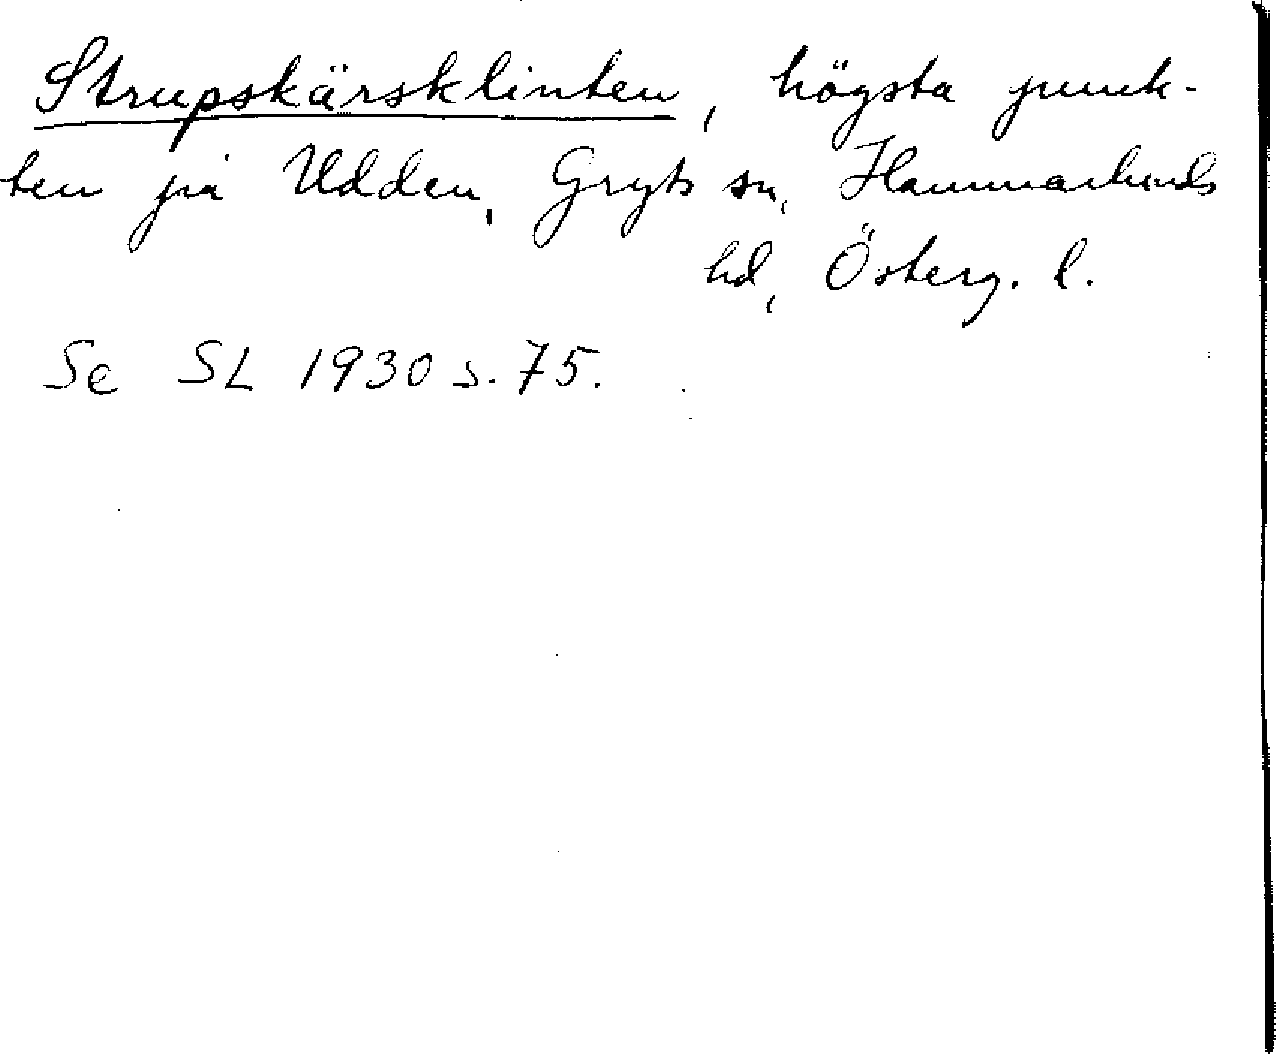 Strupskärsklinten, högsta punk-
ten på Udden, Gryts sn, Hammarkinds
hd, Österg. l.
Se SL 1930 s. 75.